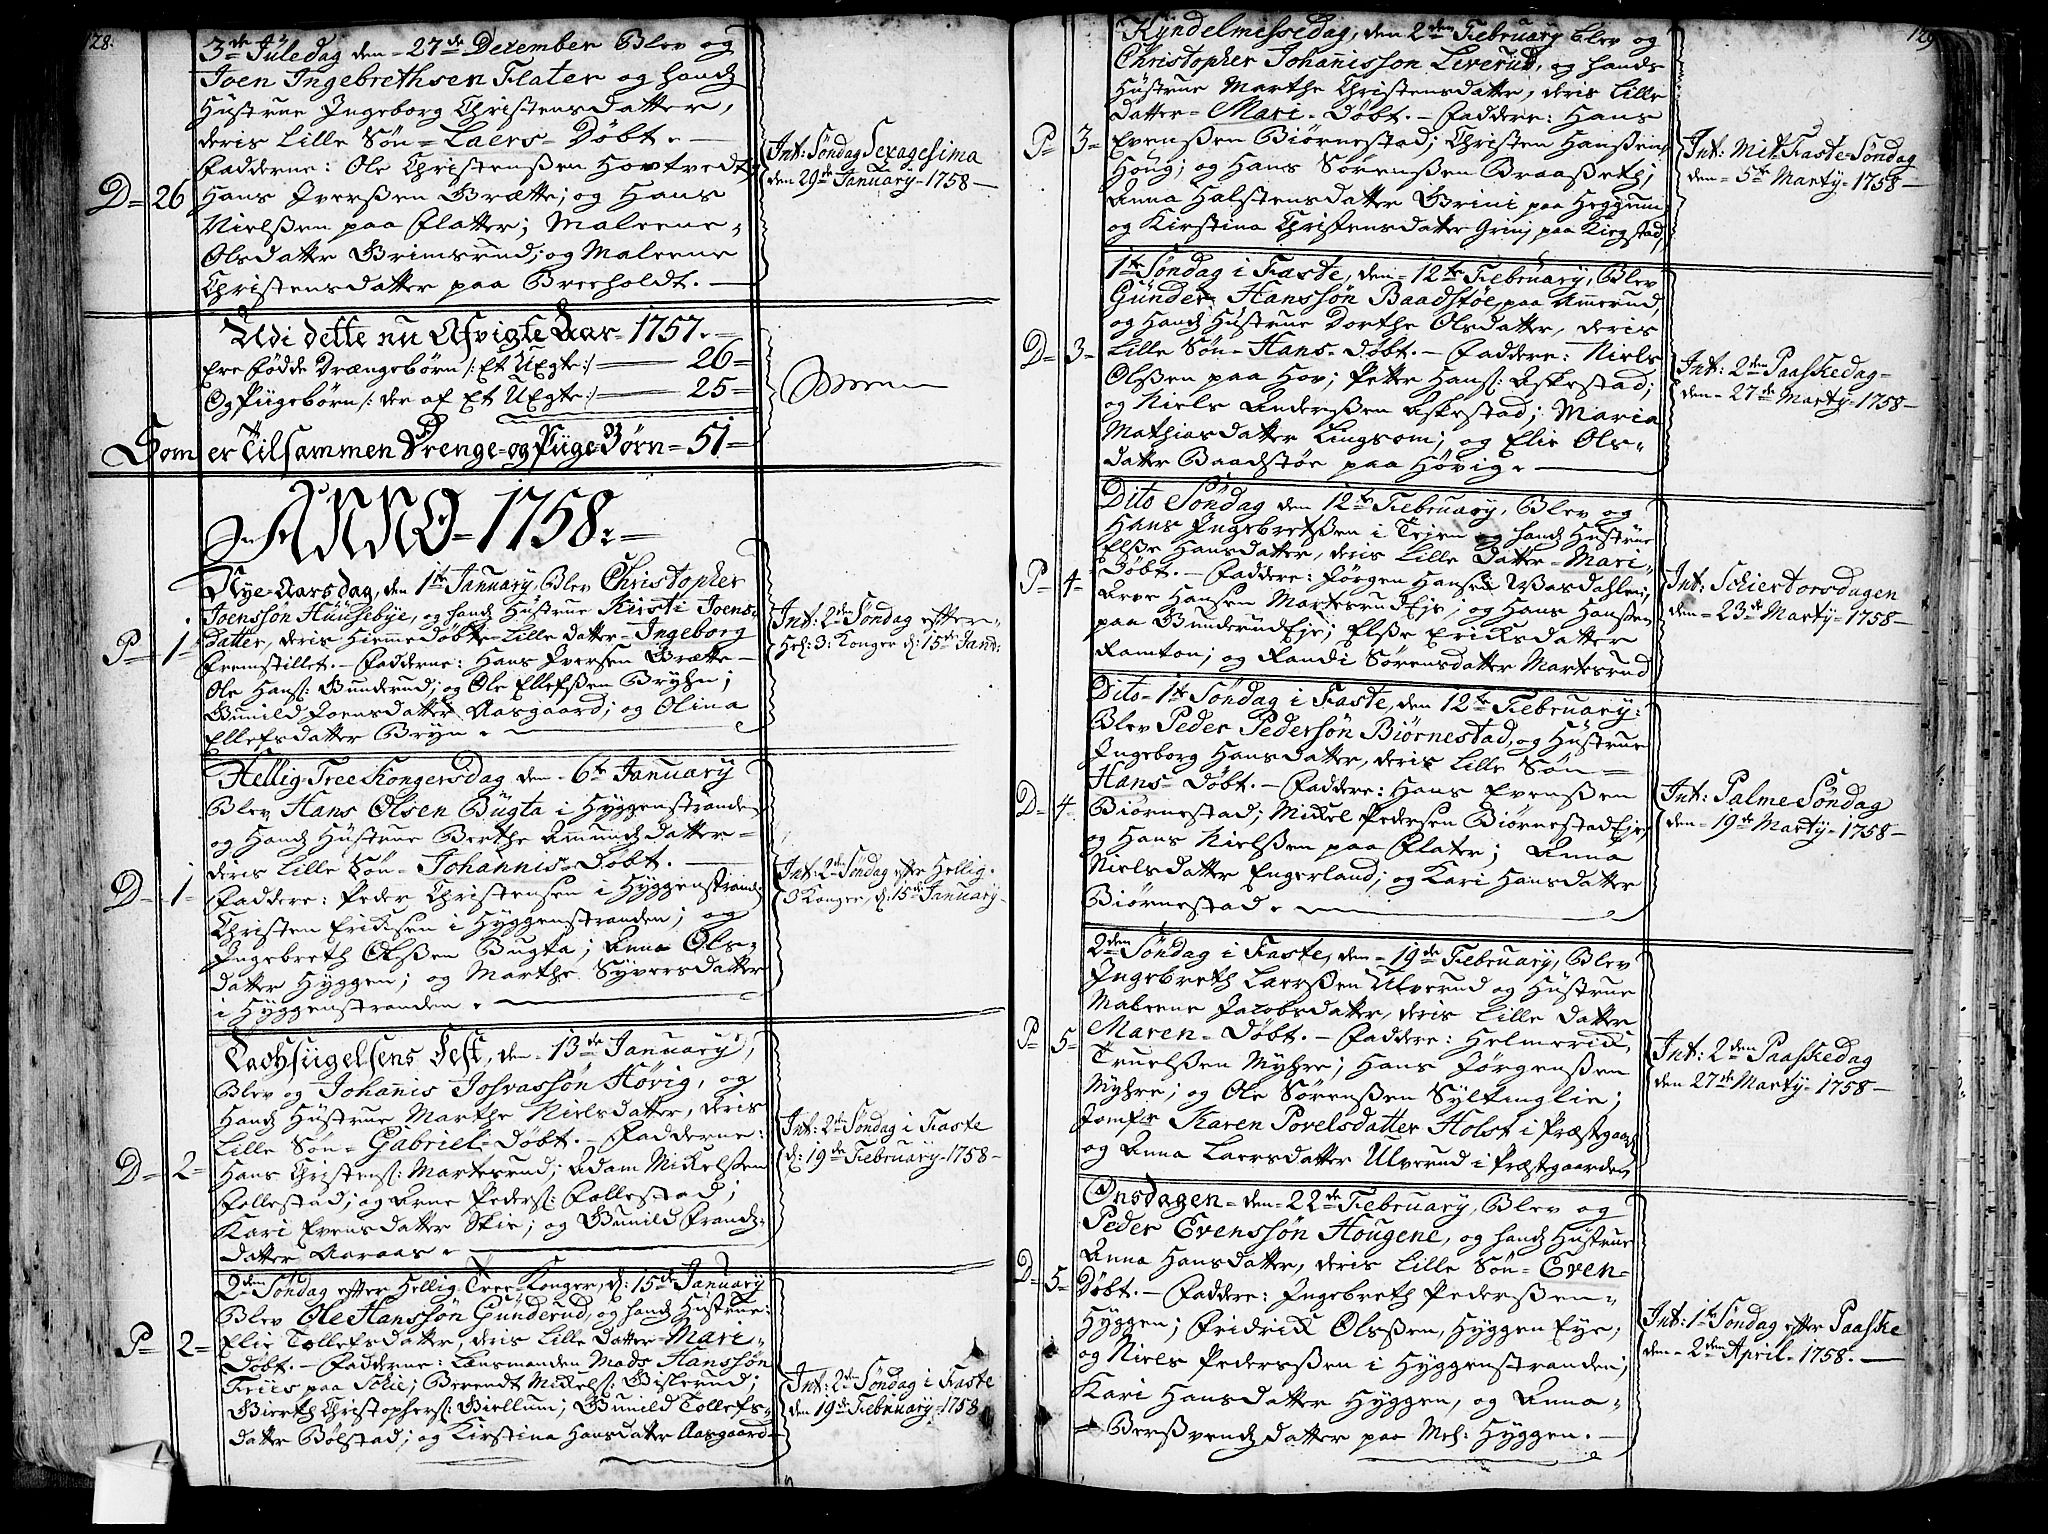 128.
3de Juledag den 27de December Blev og
Joen Ingebrethsen Flater og hands
Hustrue Ingeborg Christensdatter,
deris Lille Søn = Laers = Døbt. —
Fadderne: Ole Christenssen Hovtvedt;
D = 26 Hans Iverssen Brætte; og Hans
Nielssen paa Flatter; Maleene
Olsdatter Grimsrud; og Maleene
Christensdatter paa Breeholdt. —
Int: Søndag Sexagesima
den 29de January = 1758 —
Udi dette nu Afvigte Aar = 1757. —
ere Fødde Drængebørn /: Et Uegte :/ — 26 =
Og Piigebørn /: der af Et Uegte :/ — 25 =
Som er Tilsammen Drenge = og Piige = Børn = 51 =
In ANNO = 1758: =
Nye = Aarsdag, den 1te January, Blev Christopher
Joenssøn Huusebye, og hands Hustrue Kirsti Joens
P = 1 = datter, deris Hiemedøbte Lille datter = Ingeborg
fremstillet. — Fadderne: Hans Iversen Brætte —
Ole Hans: Bunderud; og Ole Ellefssen Bryhn;
Gunild Joensdatter Aasgaard; og Olina
Ellefsdatter Bryn. —
Int: 2den Søndag efter
Hel: 3: Konger d: 15de Janu:
Hellig = Tree Kongersdag den 6te January
Blev Hans Olsen Bugta i Hyggenstranden
og Hands Hustrue Berthe Amundsdatter =
deris Lille Søn = Johannis = Døbt. —
D = 1 = Faddere: Peder Christensen i Hyggenstrand;
Christen Eriksen i Hyggenstranden; og
Ingebreth Olssen Bugta; Anna Ols =
datter Hyggen; og Marthe Syversdatter
i Hyggenstranden. —
Int: 2den Søndag efter Hellig.
3 Konger, d: 15de January
Tachsigelsens Fest, den = 13de January,
Blev og Johannis Josvassøn Høvig, og
Hands Hustrue Marthe Nielsdatter, deris
Lille Søn = Gabriel = Døbt. — Fadderne:
D = 2 = Hans Christens: Martesrud; Adam Mickelssen
Follestad; og Arne Peders: Follestad;
Kari Evensdatter Skie; og Gunild Frands =
datter Aaraas. —
Int: 2de Søndag i Faste
d: 19de February = 1758 —
2den Søndag efter Hellig Tree Konger, d: 15de January
Blev Ole Hanssøn Gunderud, og hands Hustrue
P = 2 = Elie Tollefsdatter, deris Lille Datter = Mari =
Døbt. — Fadderne: Lensmanden Mads Hanssøn
Friis paa Schie; Berendt Mickels: Bislerud;
Giertz Christophers: Biellum; Gunild Tollefs =
datter Bølstad; og Kirstina Hansdatter Aasgaard —
Int: 2den Søndag i Faste
den 19de February = 1758
129
Kyndelmissedag, den 2den February blev og
Christopher Johanisson Liverud, og hands
Hustrue Marthe Christensdatter, deris Lille
datter = Mari = Døbt. — Faddere: Hans
P = 3 = Evenssen Biørnestad; Christen Hanssen
Houg; og Hans Sørenssen Braasseth;
Anna Halstensdatter Grini paa Heggum
og Kirstina Christensdatter Grini paa Kiegstad
Int: Mit Faste = Søndag
den = 5te Marty = 1758 —
1te Søndag i Faste, den = 12te February, Blev
Gunder Hanssøn Baadstøe, paa Amerud,
og Hands Hustrue Dorthe Olsdatter, deris
D = 3 = Lille Søn = Hans = Døbt. — Faddere: Niels
Olssen paa Hov; Petter Hans: Askestad;
og Niels Anderssen Askestad; Maria
Mathiasdatter Lingsom; og Elie Ols =
datter Baadstøe paa Høvig. —
Int: 2den Paaskedag =
den = 27de Marty = 1758 —
Dito Søndag den 12te February, Blev og
Hans Ingebretssen i Teien og hands Hustrue
Elsse Hansdatter, deris Lille Datter = Mari =
P = 4 = Døbt. — Faddere: Jørgen Hansen Wasdahlen;
Arve Hansen Martesrud Eje; og Hans Hansen
paa Bunderud Eje; Elsse Ericksdatter
Ramton; og Randi Sørensdatter Martesrud
Int: Schiertorsdagen
den = 23de Marty = 1758 —
Dito = 1te Søndag i Faste, den 12te February:
Blev Peder Pedersøn Biørnestad, og Hustrue
Ingeborg Hansdatter, deris Lille Søn =
Hans = Døbt. — Faddere: Hans Evenssen
D = 4 Biørnestad; Mickel Pedersen Biørnestad Eje,
og Hans Nielssen paa Flater; Anna
Nielsdatter Engerland; og Kari Hansdatter
Biørnestad. —
Int: Palme Søndag
den = 19de Marty = 1758 —
2den Søndag i Faste, den = 19de February, Blev
Ingebreth Laerssen Ulverud og Hustrue
Maleene Jacobsdatter, deris Lille datter
P = 5 = Maren = Døbt. — Faddere: Helmerick
Truelssen Myhre; Hans Jørgenssen
Myhre; og Ole Sørenssen Syltinglie;
Jomfr Karen Povelsdatter Holst i Præstegaard
og Anna Laersdatter Ulverud i Præstgaarden
Int: 2den Paaskedag
den 27de Marty = 1758 —
Onsdagen = den = 22de February, Blev og
Peder Evenssøn Hougene, og hands Hustrue
Anna Hansdatter, deris Lille Søn = Even =
D = 5 = Døbt. — Faddere: Ingebreth Pederssen =
Hyggen; Fridrik Olssen, Hyggen Eye;
og Niels Pederssen i Hyggenstranden;
Kari Hansdatter Hyggen, og Anna =
= Berssvendsdatter paa Mel: Hyggen. —
Int: 1te Søndag efter Paaske
den = 2den April = 1758. —